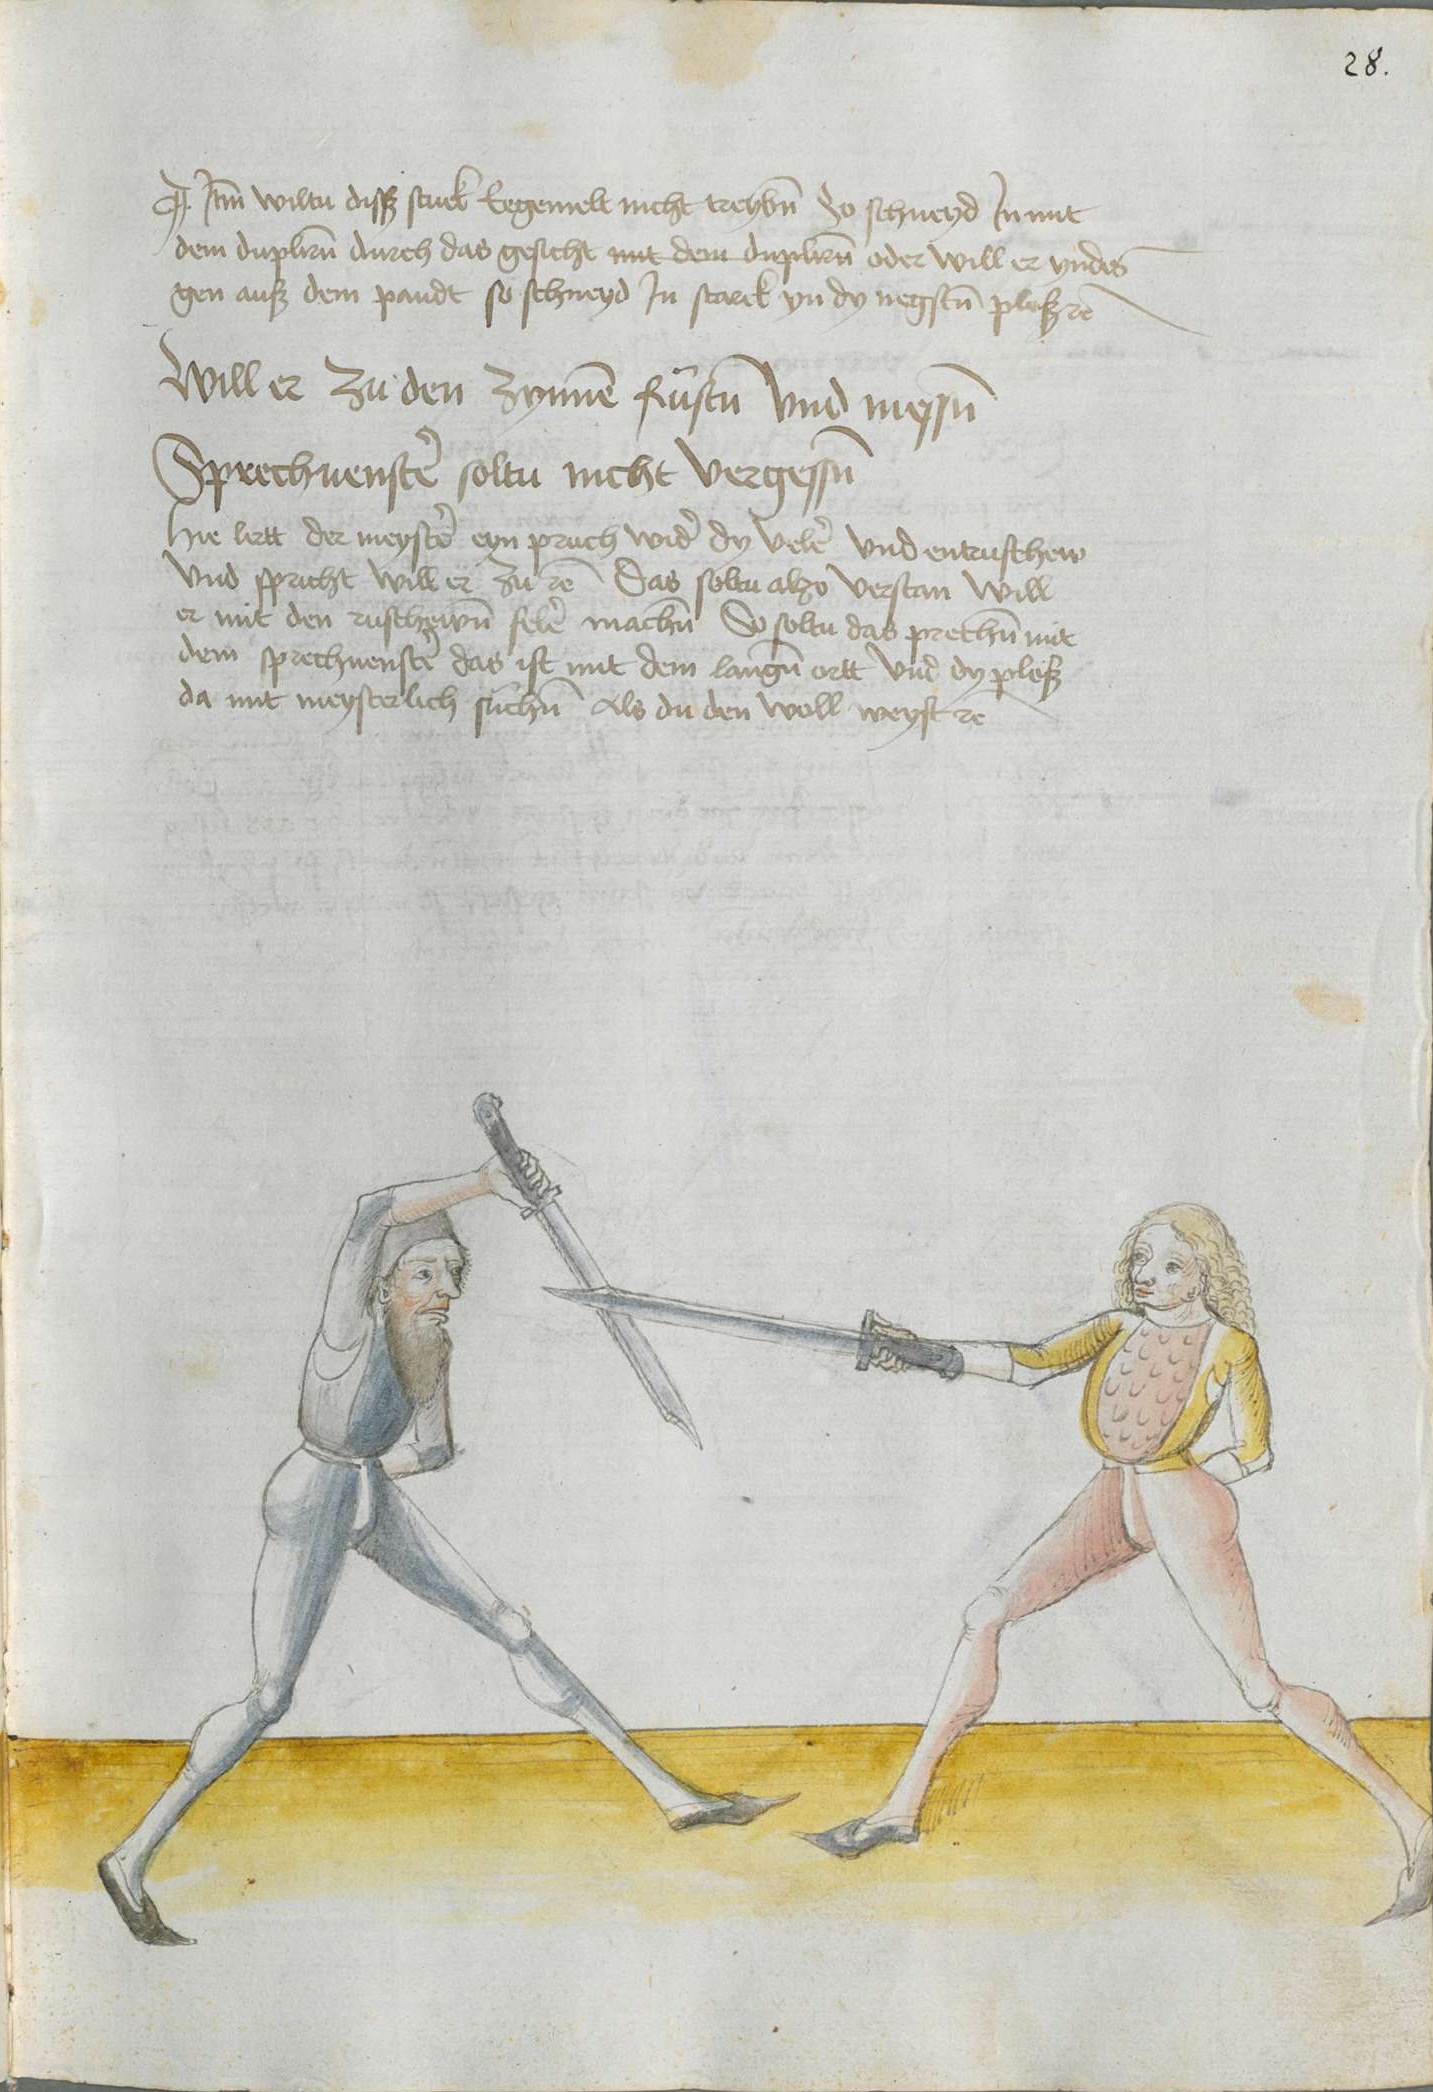 28.
Itm̄ wiltu disß stuck begemelt nicht treybn̄ So schneyd In mit
dem duplirn̄ durch das gesicht mit dem duplirn̄ oder will er yndes
gen auß dem pandt so schneyd In starck yn dy negstn̄ plosß rc
Will er zu den zynnē rustn̄ Vnd messn̄
Sprechvenster̄ soltu nicht vergessn̄
Hie lertt der meyster̄ eyn pruch wid̄ dy veler̄ vnd entruschein
Vnd spricht will er zu rc Das soltu also verstan Will
er mit den ruscheiwn̄ feler̄ machn̄ So soltu das prechn̄ mit
dem sprechvenster̄ das ist mit dem langn̄ ortt Vnd dy plosß
da mit meysterlich suchn̄ Als du den woll weyst rc